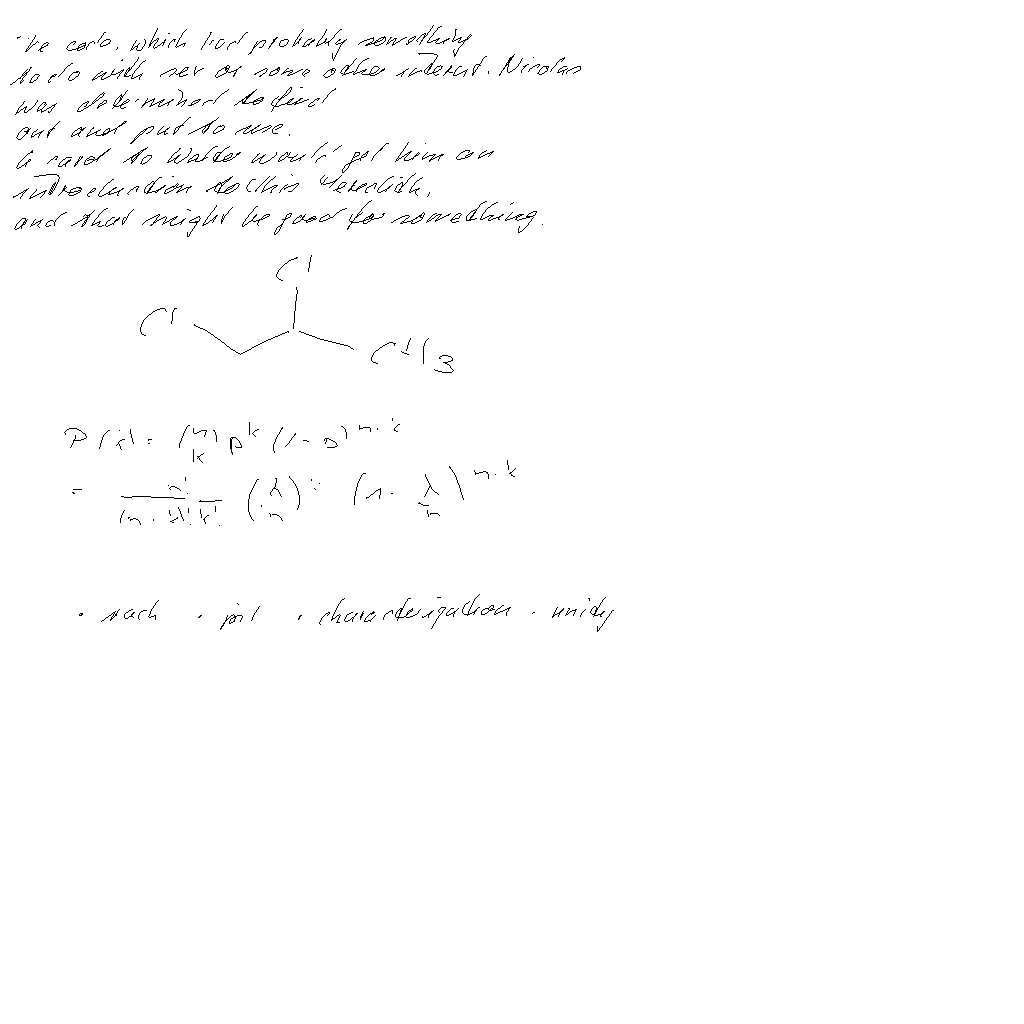 code, which had probably something
to do with sex or some other interest. Nicolas
was determined to find
out and put to use.
A card to Walter would get him an
introduction to this Meredith,
and that might be good for something.
Cl
Cl
CH3
P(k) = (n k) p^k (1-p)^n-k
= n! / (n-k)! k! (λ/n)^k (1-λ/n)^n-k
• characterization • unity